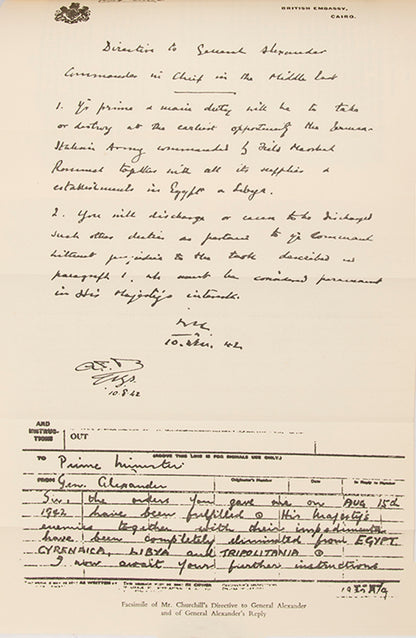 BRITISH EMBASSY,
CAIRO.
Directive to General Alexander
Commander in Chief in the Middle East
1. Yr prime & main duty will be to take
or destroy at the earliest opportunity the German-
Italian Army commanded by Field Marshal
Rommel together with all its supplies &
establishments in Egypt & Libya.
2. You will discharge or cause to be discharged
such other duties as pertain to yr Command
without prejudice to the task described in
paragraph 1, wh must be considered paramount
in His Majesty's interests.
10.8.42
AND
INSTRUC-
TIONS
OUT
(ABOVE THIS LINE IS FOR SIGNALS USE ONLY.)
TO Prime Minister
FROM Gen. Alexander
Originator's Number
Date
In Reply to Number
Sir, the orders you gave me on AUG 15th
1942 have been fulfilled. His Majesty's
enemies together with their impedimenta
have been completely eliminated from EGYPT
CYRENAICA, LIBYA and TRIPOLITANIA.
I now await your further instructions
Facsimile of Mr. Churchill's Directive to General Alexander
and of General Alexander's Reply